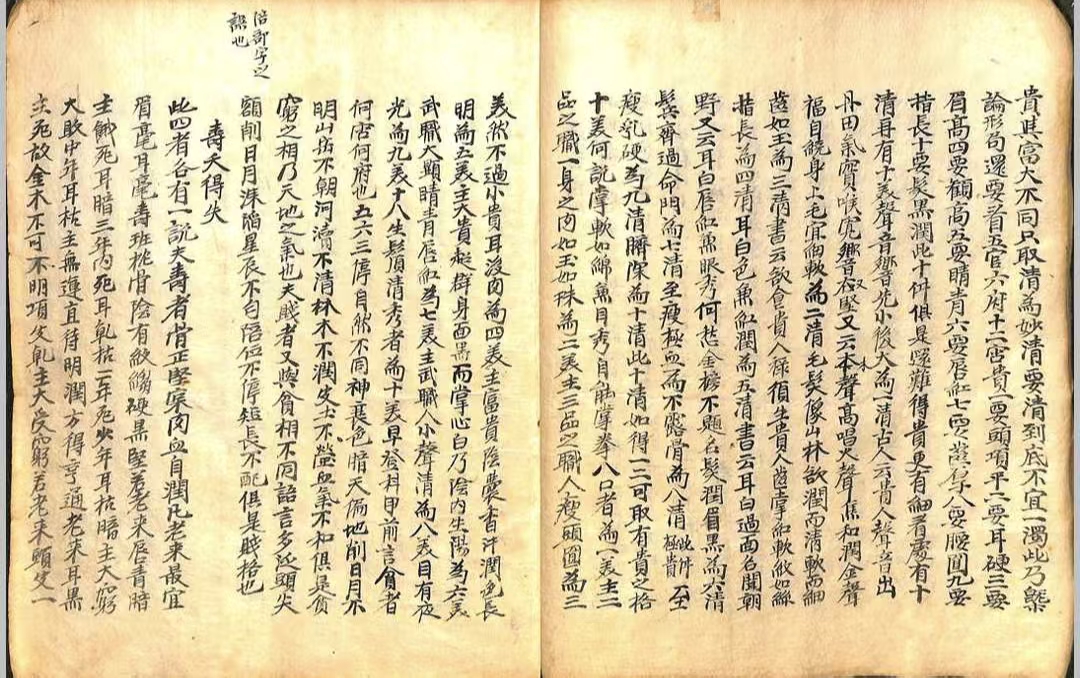 貴其富大不同只取清為妙清要清到底不宜一濁此乃槩
論形局還要看五官六府十二宮貴一要頭項平二要耳硬三要
眉高四要顴高五要睛青六要唇紅七要齒勻八要腰闊九要
指長十要髮黑潤此十件俱是㝡難得貴更有細看處有十
清再有十美聲音響先小後大為一清古人云貴人聲音出
丹田氣實喉寬響又堅又六木聲高唱火聲焦和潤金聲
福自饒身上毛宜細軟為二清毛髮像山林欲潤而清軟而細
齒如玉為三清書云欲食貴人祿須生貴人齒掌和軟紋如絲
指長為四清耳白色兼紅潤為五清書云耳白過面名聞朝
野又云耳白唇紅兼眼秀何愁金榜不題名髮潤眉黑為六清
鬂齊過命門為七清至瘦極血而不露骨為八清此件極貴女至
瘦乳硬為九清臍深為十清此十清如得一二可取有貴之格
十美何說掌軟如綿兼目秀自能掌拳八口者為一美主二
品之職一身之肉如玉如珠為二美主三品之職人瘦頭圓為三
美然不過小貴耳後肉為四美主富貴陰囊香汗潤色長
明為五美主大貴凝群身面黑而掌心白乃陰內生陽為六美
武職大顯睛青唇紅為七美主武職人小聲清為八美目有夜
光為九美十八生鬚清秀者為十美早登科甲前言貪者
何宮何府也五六三停自然不同神衰色暗天偏地削日月不
明山岳不朝河瀆不清林木不潤皮土不瑩血氣不和俱是貧
窮之相乃天地之氣也夫賤者又與貧相不同語言多泛頭尖
額削日月深陷星辰不勻陪位不停短長不配俱是賤格也
陪部字之
誤也
壽夭得失
此四者各有一說夫壽者骨正堅寔肉血自潤凡老來最宜
眉毫耳毫壽班枕骨陰有紋縐硬黑堅若老來唇青暗
主餓死耳暗三年內死耳乾枯一年死少年耳枯暗主大窮
大敗中年耳枯主無運直待明潤方得亨通老來耳黑
主死故金木不可不明項皮乾主大受窮若老來頸皮一